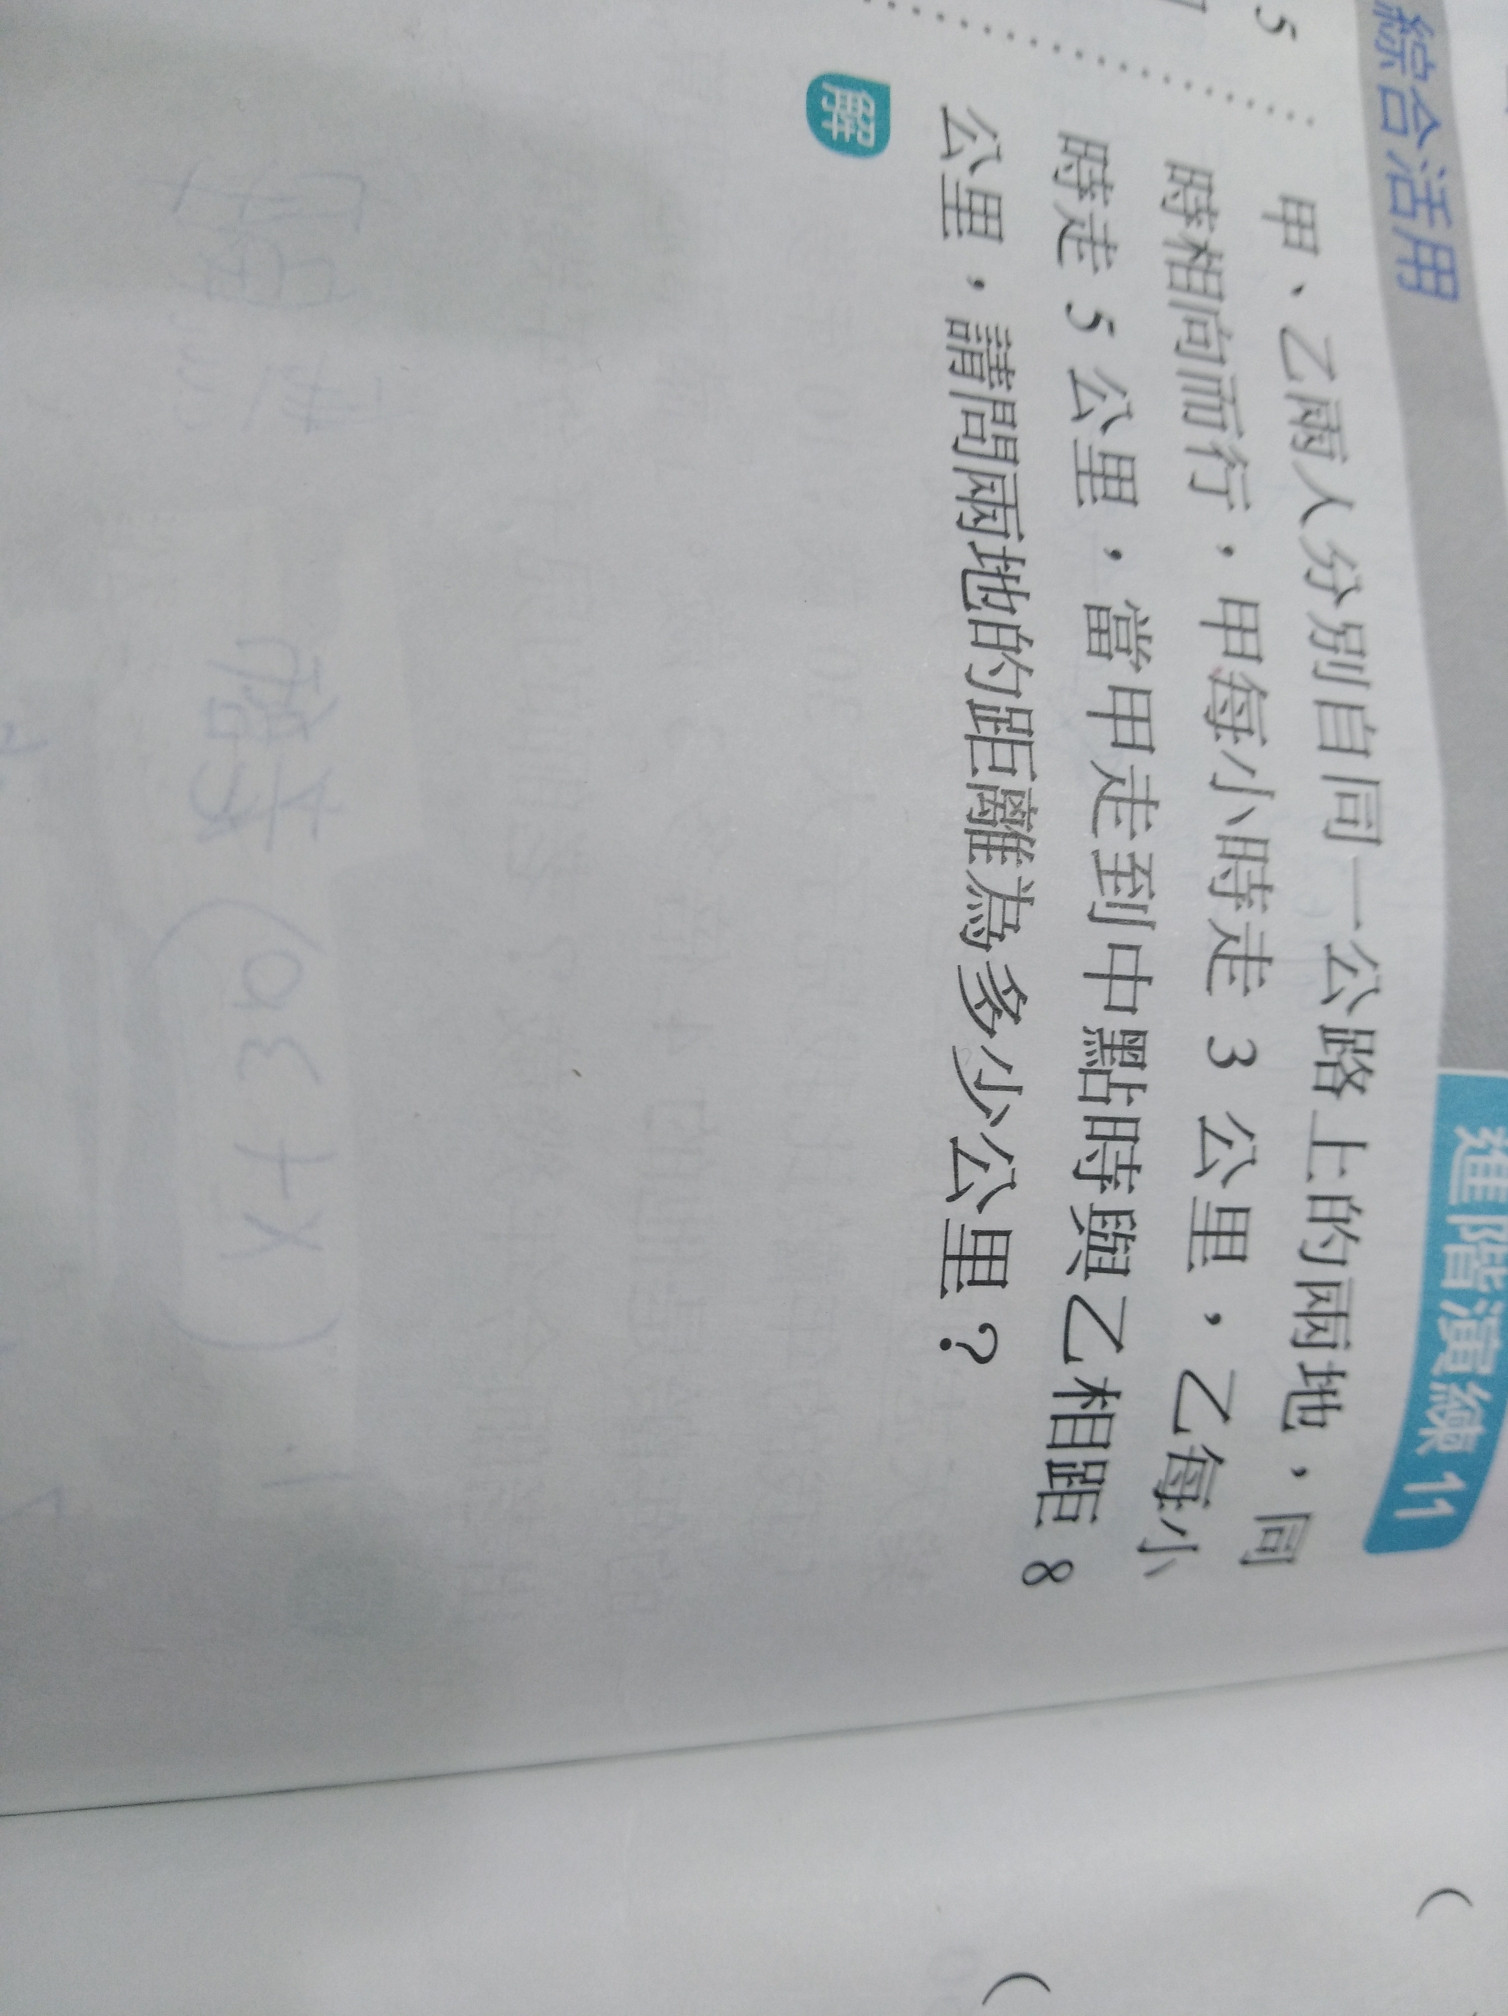 綜合活用
進階演練 11
5
甲、乙兩人分別自同一公路上的兩地，同
時相向而行，甲每小時走 3 公里，乙每小
時走 5 公里，當甲走到中點時與乙相距 8
公里，請問兩地的距離為多少公里？
解
(
(